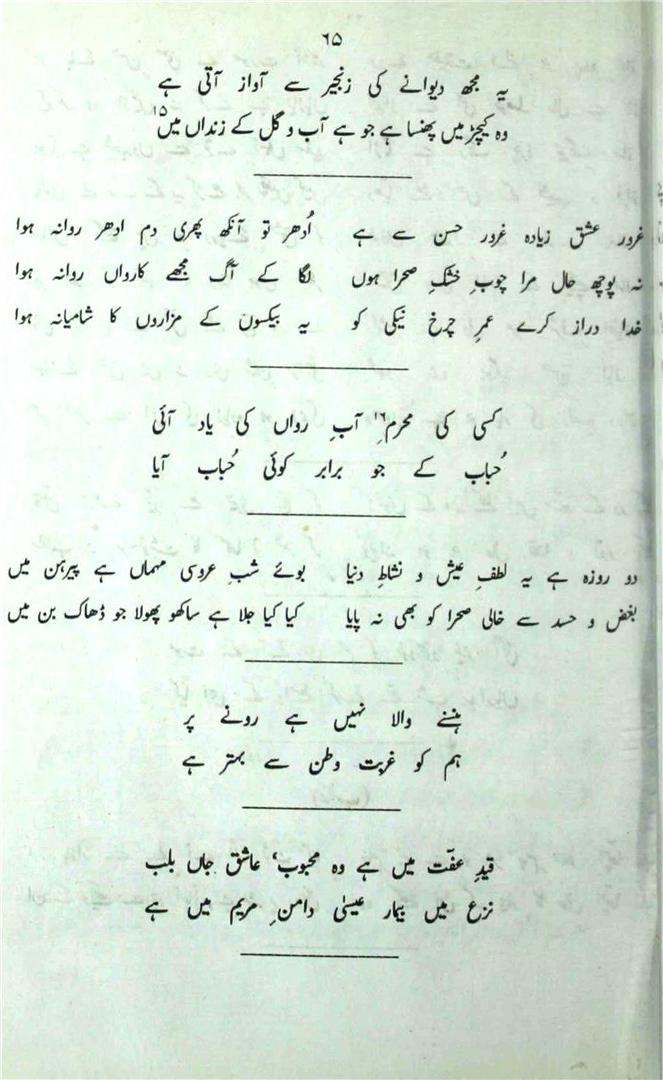 ۶۵
یہ مجھ دیوانے کی زنجیر سے آواز آتی ہے
وہ کیچڑ میں پھنسا ہے جو ہے آب و گل کے زنداں میں ۱۵
غرور عشق زیادہ غرور حسن سے ہے اُدھر تو آنکھ پھری دم ادھر روانہ ہوا
نہ پوچھ حال مرا چوبِ خشکِ صحرا ہوں لگا کے آگ مجھے کارواں روانہ ہوا
خدا دراز کرے عمرِ چرخ نیکی کو یہ بیکسوں کے مزاروں کا شامیانہ ہوا
کسی کی محرمِ ۱۶ آبِ رواں کی یاد آئی
حُباب کے جو برابر کوئی حُباب آیا
دو روزہ ہے یہ لطفِ عیش و نشاطِ دنیا بوئے شبِ عروسی مہماں ہے پیرہن میں
بغض و حسد سے خالی صحرا کو بھی نہ پایا کیا کیا جلا ہے ساکھو پھولا جو ڈھاک بن میں
ہنسنے والا نہیں ہے رونے پر
ہم کو غربت وطن سے بہتر ہے
قیدِ عفّت میں ہے وہ محبوب، عاشق جاں بلب
نزع میں بیمار عیسیٰ دامنِ مریم میں ہے